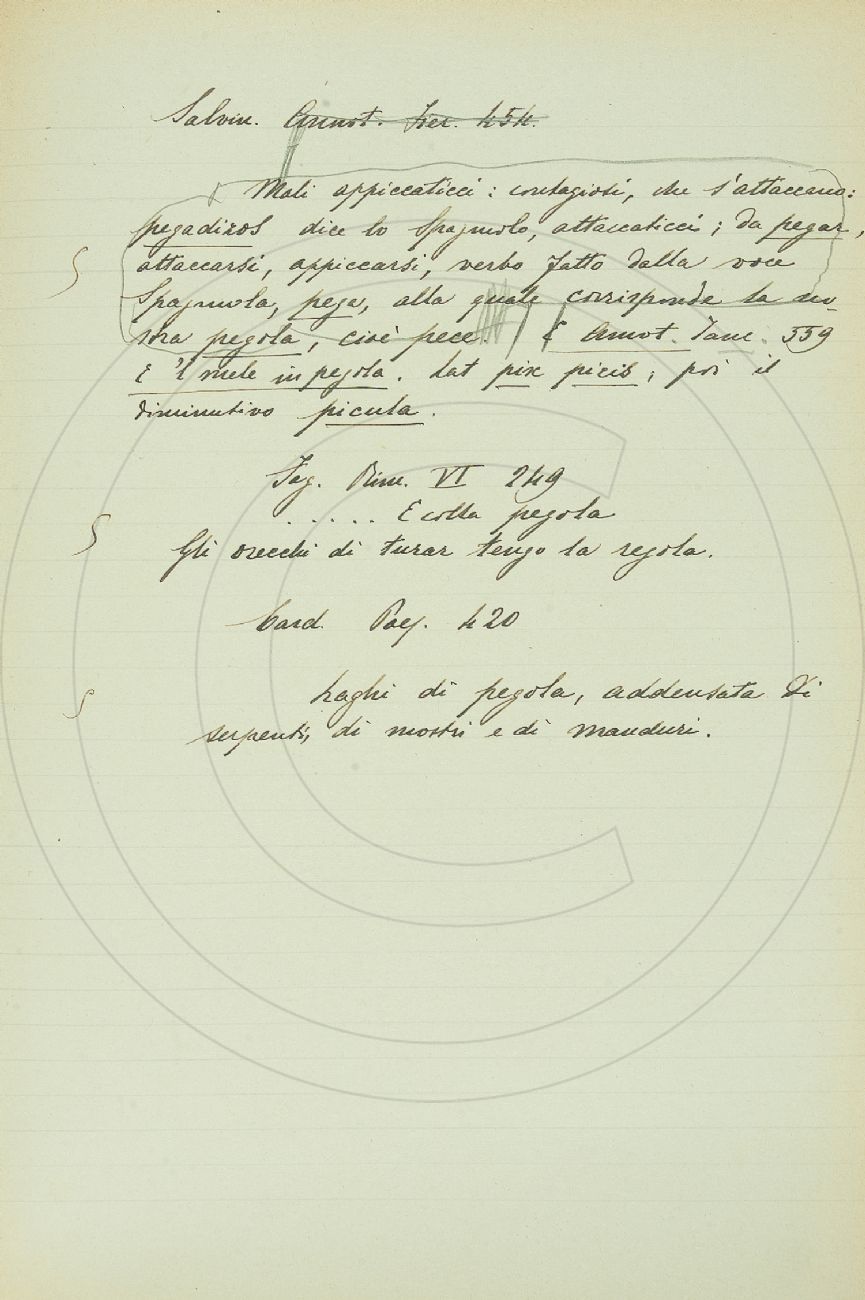 Salvin. Annot. Fier. 454.
Mali appiccaticci: contagiosi, che s'attaccano:
pegadizos dice lo Spagnuolo, attaccaticci; da pegar,
attaccarsi, appiccarsi, verbo fatto dalla voce
Spagnuola, pega, alla quale corrisponde la no-
stra pegola, cioè pece. E Annot. Tanc. 559
E 'l mele in pegola. Lat pix picis; poi il
diminutivo picula.
Fag. Rim. VI 249
..... E colla pegola
Gli orecchi di turar tengo la regola.
Card. Poes. 420
Laghi di pegola, addensata di
serpenti, di mostri e di